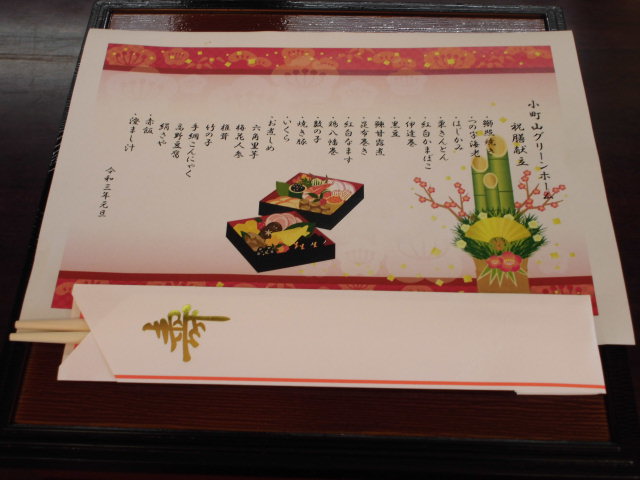 小町山グリーンホーム
祝膳献立
・鰤照焼き
・つの子海老
・はじかみ
・栗きんとん
・紅白かまぼこ
・伊達巻
・黒豆
・鰊甘露煮
・昆布巻き
・紅白なます
・鶏八幡巻
・数の子
・焼き豚
・いくら
・お煮しめ
六角里芋
梅花人参
椎茸
竹の子
手綱こんにゃく
高野豆腐
絹さや
・赤飯
・澄まし汁
令和三年元旦
寿